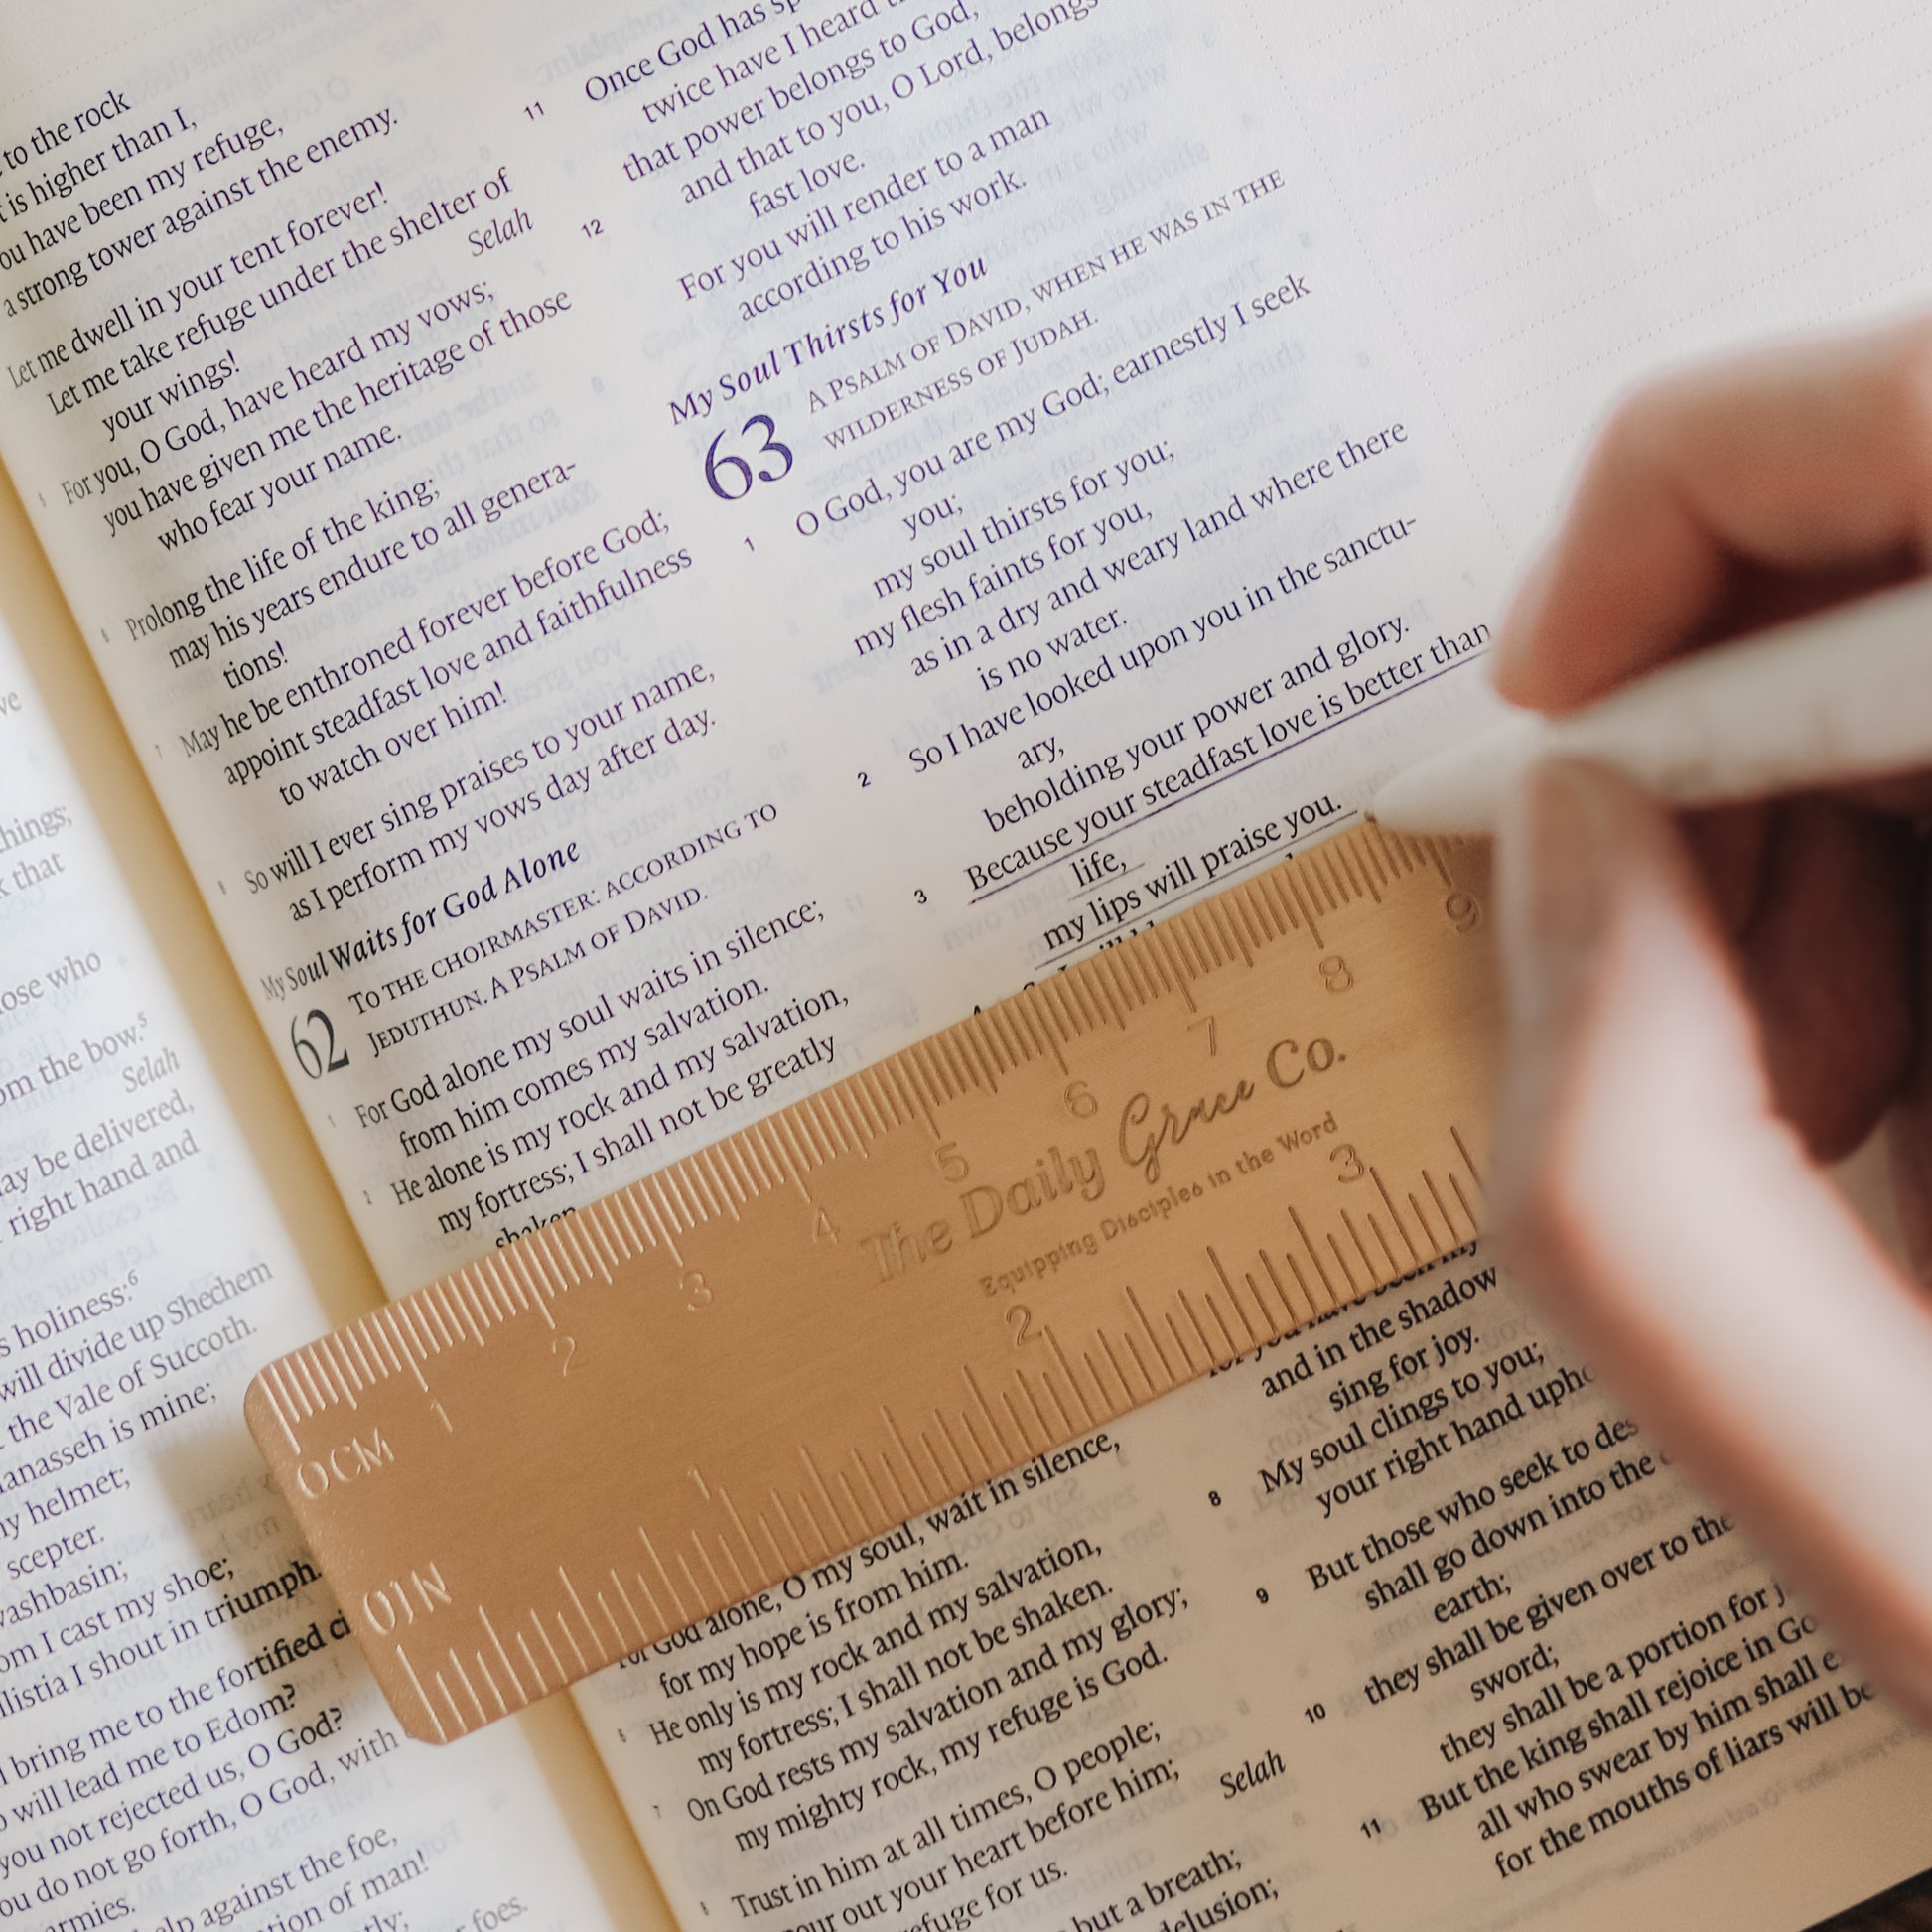 ve
hings;
that
ose who
om the bow.5
Selah
ay be delivered,
right hand and
holiness:6
will divide up Shechem
the Vale of Succoth.
anasseh is mine;
helmet;
scepter.
washbasin;
I cast my shoe;
I shout in triumph.
bring me to the fortified
will lead me to Edom?
you not rejected us, O God?
do not go forth, O God, with
armies.
against the foe,
of man!
foes.
to the rock
is higher than I,
you have been my refuge,
a strong tower against the enemy.
Let me dwell in your tent forever!
Let me take refuge under the shelter of
your wings! Selah
5 For you, O God, have heard my vows;
you have given me the heritage of those
who fear your name.
6 Prolong the life of the king;
may his years endure to all genera-
tions!
7 May he be enthroned forever before God;
appoint steadfast love and faithfulness
to watch over him!
8 So will I ever sing praises to your name,
as I perform my vows day after day.
My Soul Waits for God Alone
62 TO THE CHOIRMASTER: ACCORDING TO
JEDUTHUN. A PSALM OF DAVID.
1 For God alone my soul waits in silence;
from him comes my salvation.
2 He alone is my rock and my salvation,
my fortress; I shall not be greatly
shaken
For God alone, O my soul, wait in silence,
for my hope is from him.
6 He only is my rock and my salvation,
my fortress; I shall not be shaken.
7 On God rests my salvation and my glory;
my mighty rock, my refuge is God.
8 Trust in him at all times, O people;
pour out your heart before him;
refuge for us. Selah
but a breath;
delusion;
11 Once God has
twice have I heard
that power belongs to God,
12 and that to you, O Lord, belongs
fast love.
For you will render to a man
according to his work.
My Soul Thirsts for You
63 A PSALM OF DAVID, WHEN HE WAS IN THE
WILDERNESS OF JUDAH.
1 O God, you are my God; earnestly I seek
you;
my soul thirsts for you;
my flesh faints for you,
as in a dry and weary land where there
is no water.
2 So I have looked upon you in the sanctu-
ary,
beholding your power and glory.
3 Because your steadfast love is better than
life,
my lips will praise you.
for you have been my
and in the shadow
sing for joy.
8 My soul clings to you;
your right hand
9 But those who seek to
shall go down into the
earth;
10 they shall be given over to the
sword;
they shall be a portion for
11 But the king shall rejoice in
all who swear by him shall
for the mouths of liars will be
0 CM 1 2 3 4 5 6 7 8 9
The Daily Grace Co.
Equipping Disciples in the Word
0 IN 1 2 3